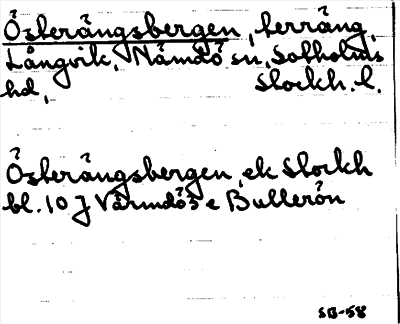 Österängsbergen, terräng,
Långvik, Nämdö sn, Sotholms
hd, Stockh. l.
Österängsbergen, ek Stockh
bl. 10 J Värmdö 5 e Bullerön
SB-58